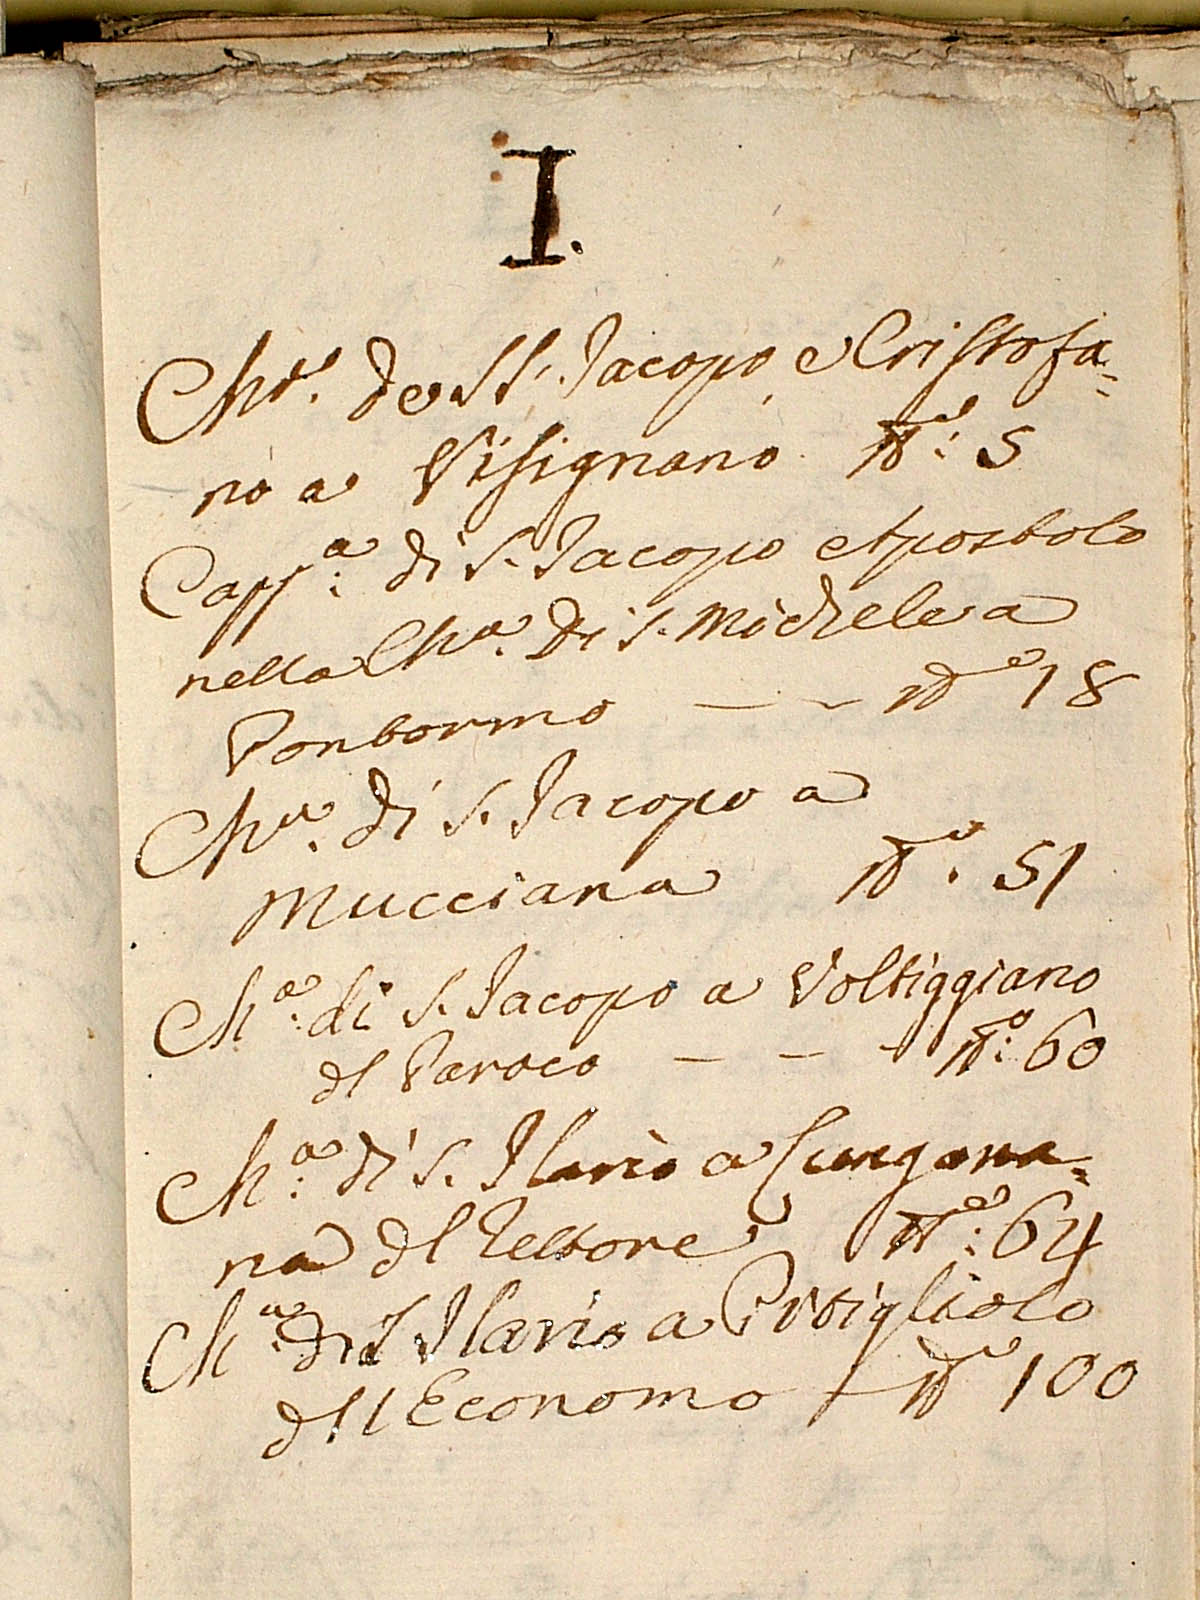 I.
Chª. de SS. Jacopo e Cristofa=
no a Visignano Nº: 5
Capp:ª di S. Jacopo Apostolo
nella Chª. di S. Michele a
Pontormo — — Nº 18
Chª. di S. Jacopo a
Mucciana Nº. 51
Chª: di S. Jacopo a Voltiggiano
del Paroco — — - Nº: 60
Chª: di S. Ilario a
na del Rettore Nº: 64
Chª: di S Ilario a Pitigliolo
dell Economo — Nº 100